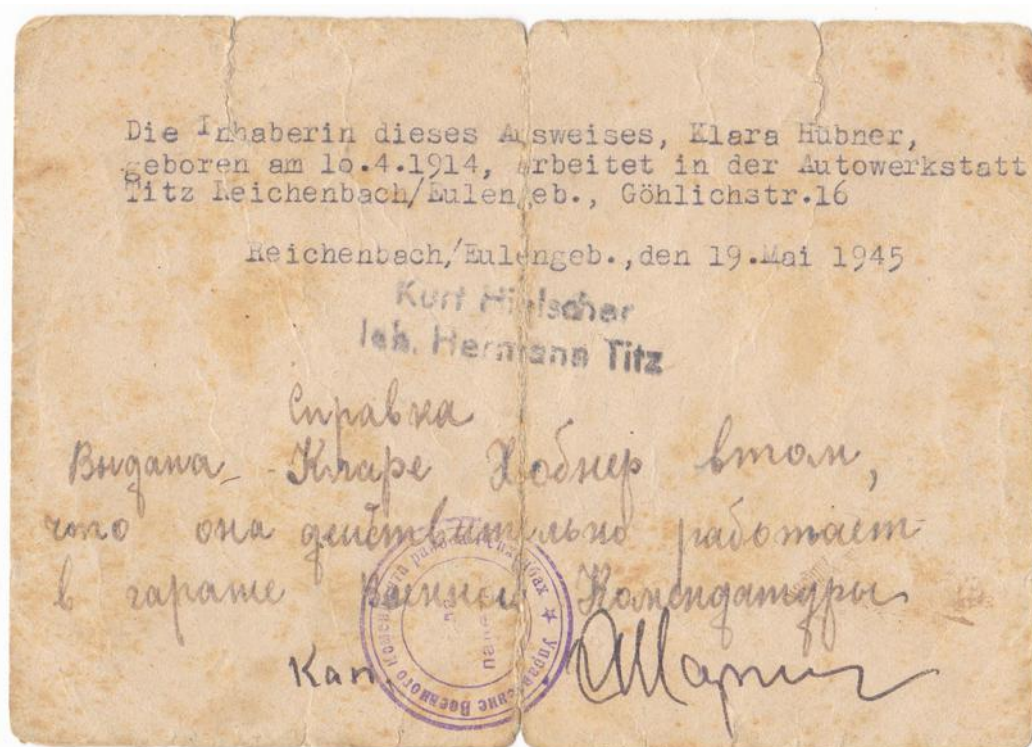 Die Inhaberin dieses Ausweises, Klara Hübner,
geboren am 10.4.1914, arbeitet in der Autowerkstatt
Titz Reichenbach/Euleng eb., Göhlichstr.16
Reichenbach/Eulengeb.,den 19.Mai 1945
Kurt Hielscher
Inh. Hermann Titz
Справка
Выдана Кларе Хобнер втом,
что она действительно работает
в гараже Военной Комендатуры
Кап.
Управление Военного Коменданта района